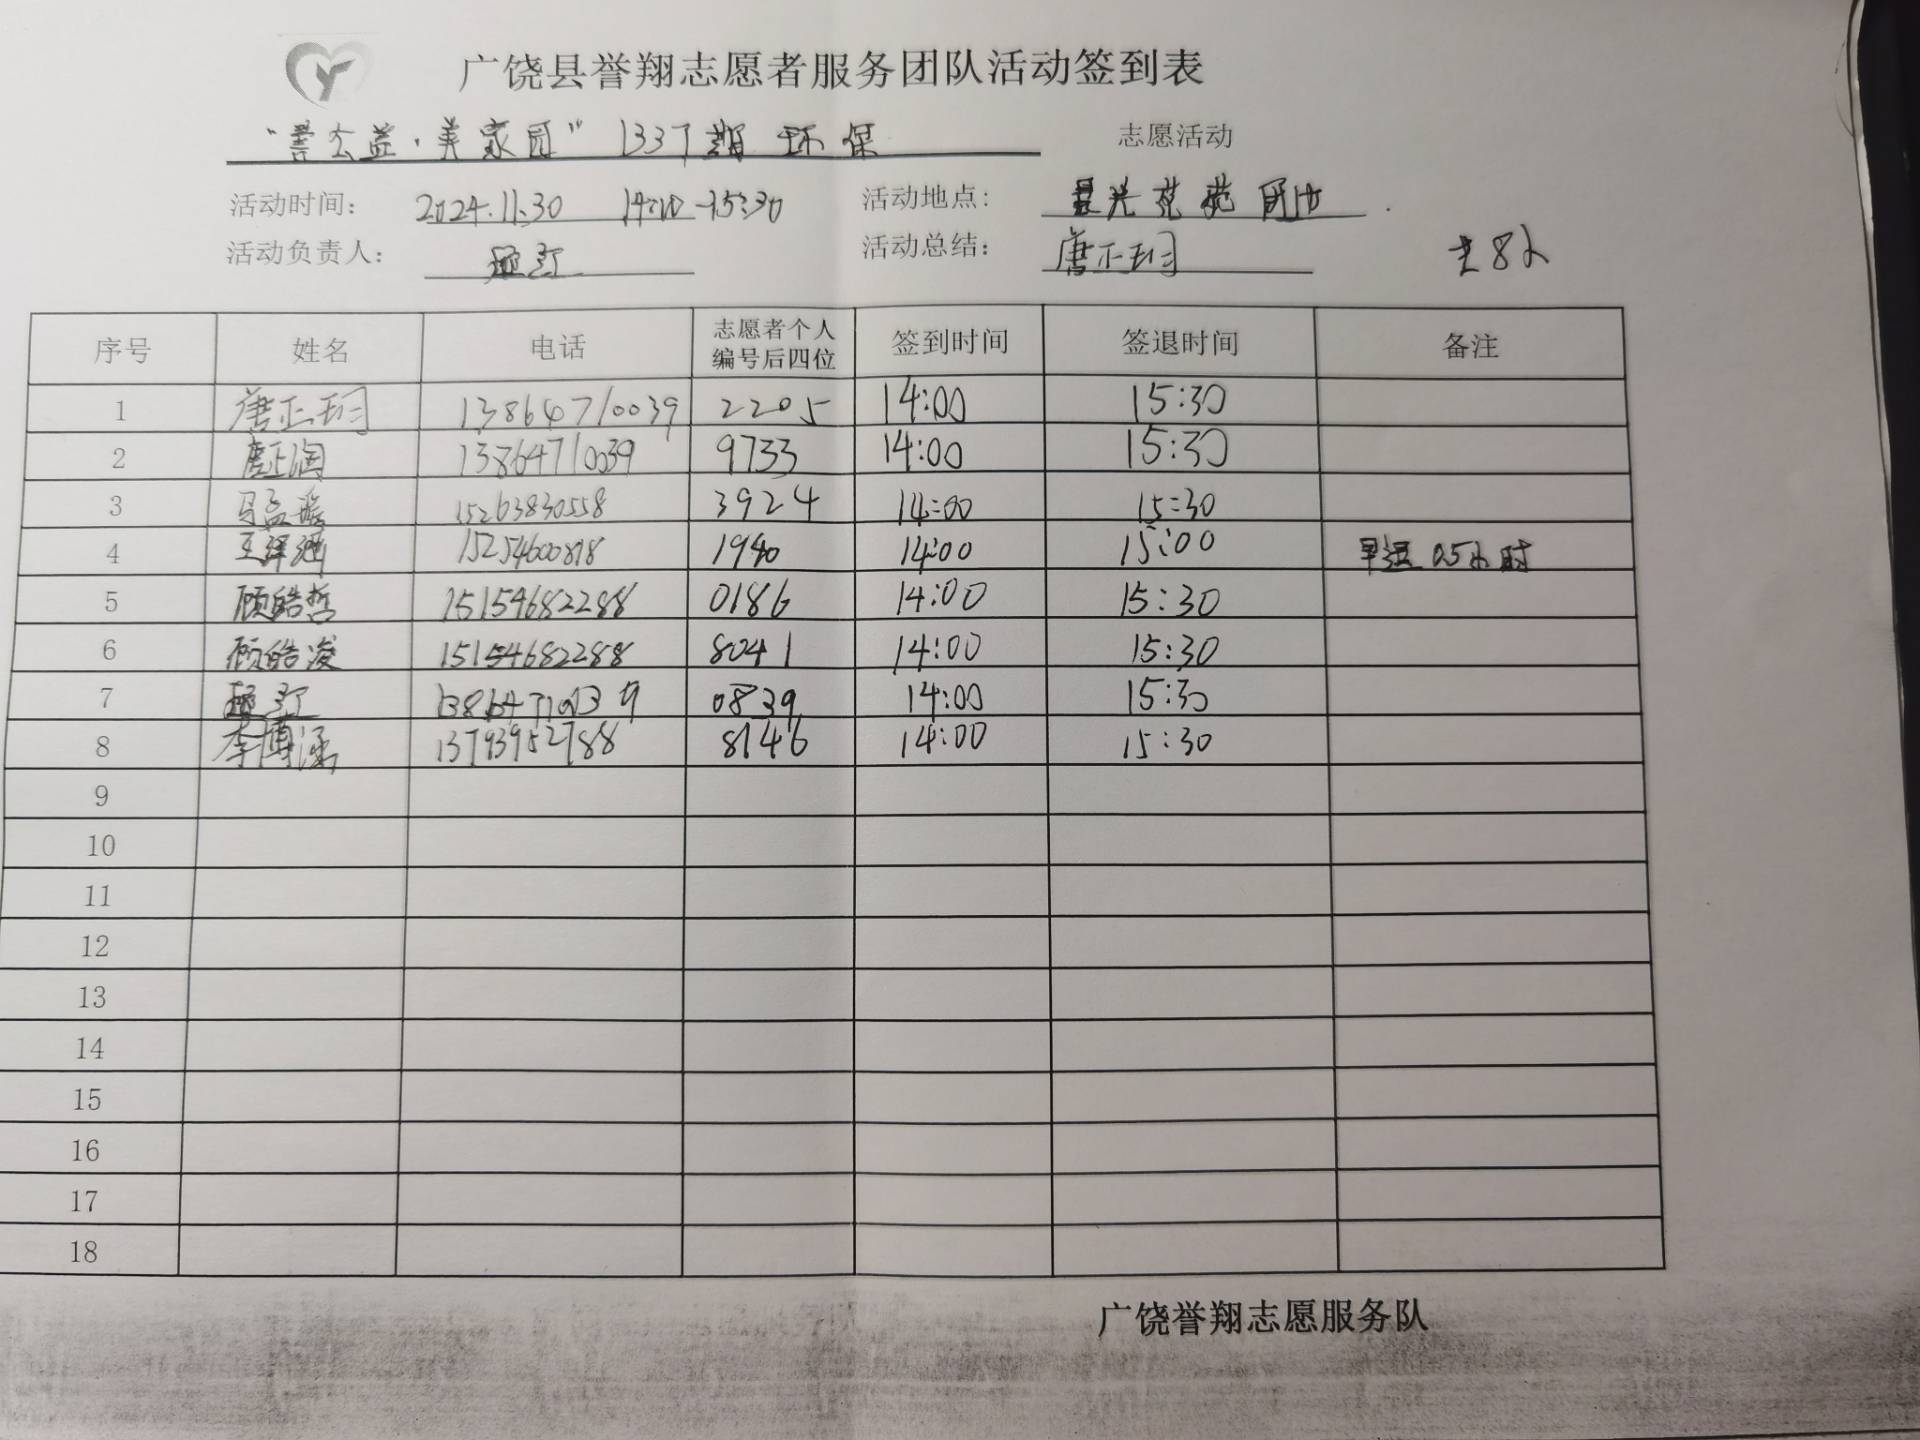 广饶县誉翔志愿者服务团队活动签到表
公益·美家园” 1337期 环保 志愿活动
活动时间: 2024.11.30 14:00-15:30 活动地点: 星光花苑周边
活动负责人: 活动总结: 唐正珂 共8人
序号 姓名 电话 志愿者个人编号后四位 签到时间 签退时间 备注
1 唐正珂 13864710039 2205 14:00 15:30
2 唐正润 13864710039 9733 14:00 15:30
3 马孟瑶 15263830558 3924 14:00 15:30
4 王泽涵 15254600818 1940 14:00 15:00 早退0.5小时
5 顾皓哲 15154682288 0186 14:00 15:30
6 顾皓浚 15154682288 8041 14:00 15:30
7 0839 14:00 15:30
8 李博涵 13793952788 8146 14:00 15:30
9
10
11
12
13
14
15
16
17
18
广饶誉翔志愿服务队